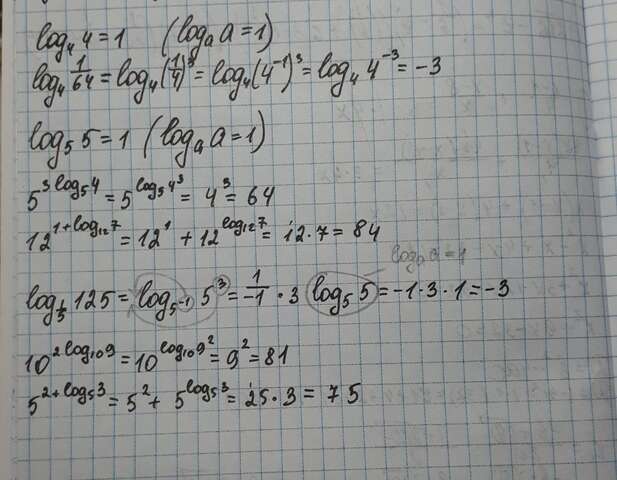 log₄ 4 = 1 (logₐ a = 1)
log₄ 1/64 = log₄ (1/4)³ = log₄ (4⁻¹)³ = log₄ 4⁻³ = -3
log₅ 5 = 1 (logₐ a = 1)
5^(3 log₅ 4) = 5^(log₅ 4³) = 4³ = 64
12^(1+log₁₂ 7) = 12¹ + 12^(log₁₂ 7) = 12 · 7 = 84
logₐ a = 1
log_(1/5) 125 = log_(5⁻¹) 5³ = 1/-1 · 3 log₅ 5 = -1 · 3 · 1 = -3
10^(2 log₁₀ 9) = 10^(log₁₀ 9²) = 9² = 81
5^(2+log₅ 3) = 5² + 5^(log₅ 3) = 25 · 3 = 75